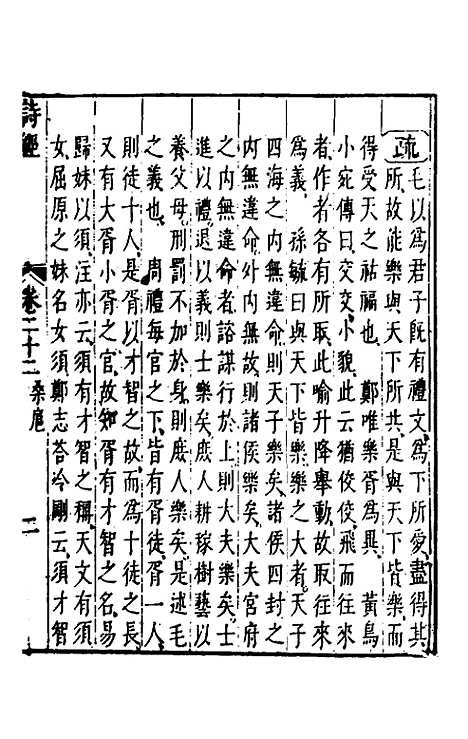 疏毛以爲君子旣有禮文爲下所愛盡得其
所故能樂與天下所共是與天下皆樂而
得受天之祜福也　鄭唯樂胥爲異　黃鳥
小宛傳曰交交小貌此云猶佼佼飛而往來
者作者各有所取此喻升降舉動故取往來
爲義　孫毓曰與天下樂樂之大者天子
四海之內無違命則天子樂矣諸侯四封之
內無違命外內無故則諸侯樂矣大夫官府
之內無違命者諮謀行於上則大夫樂矣士
進以禮退以義則士樂矣庶人耕稼樹藝以
養父母刑罰不加於身則庶人樂矣是述毛
之義也　周禮每官之下皆有胥徒胥一人
則徒十人是胥以才智之故而爲十徒之長
又有大胥小胥之官故知胥有才智之名易
歸妹以須注亦云須有才智之稱天文有須
女屈原之妹名女須鄭志荅冷剛云須才智
詩經　卷二十二　桑扈　二